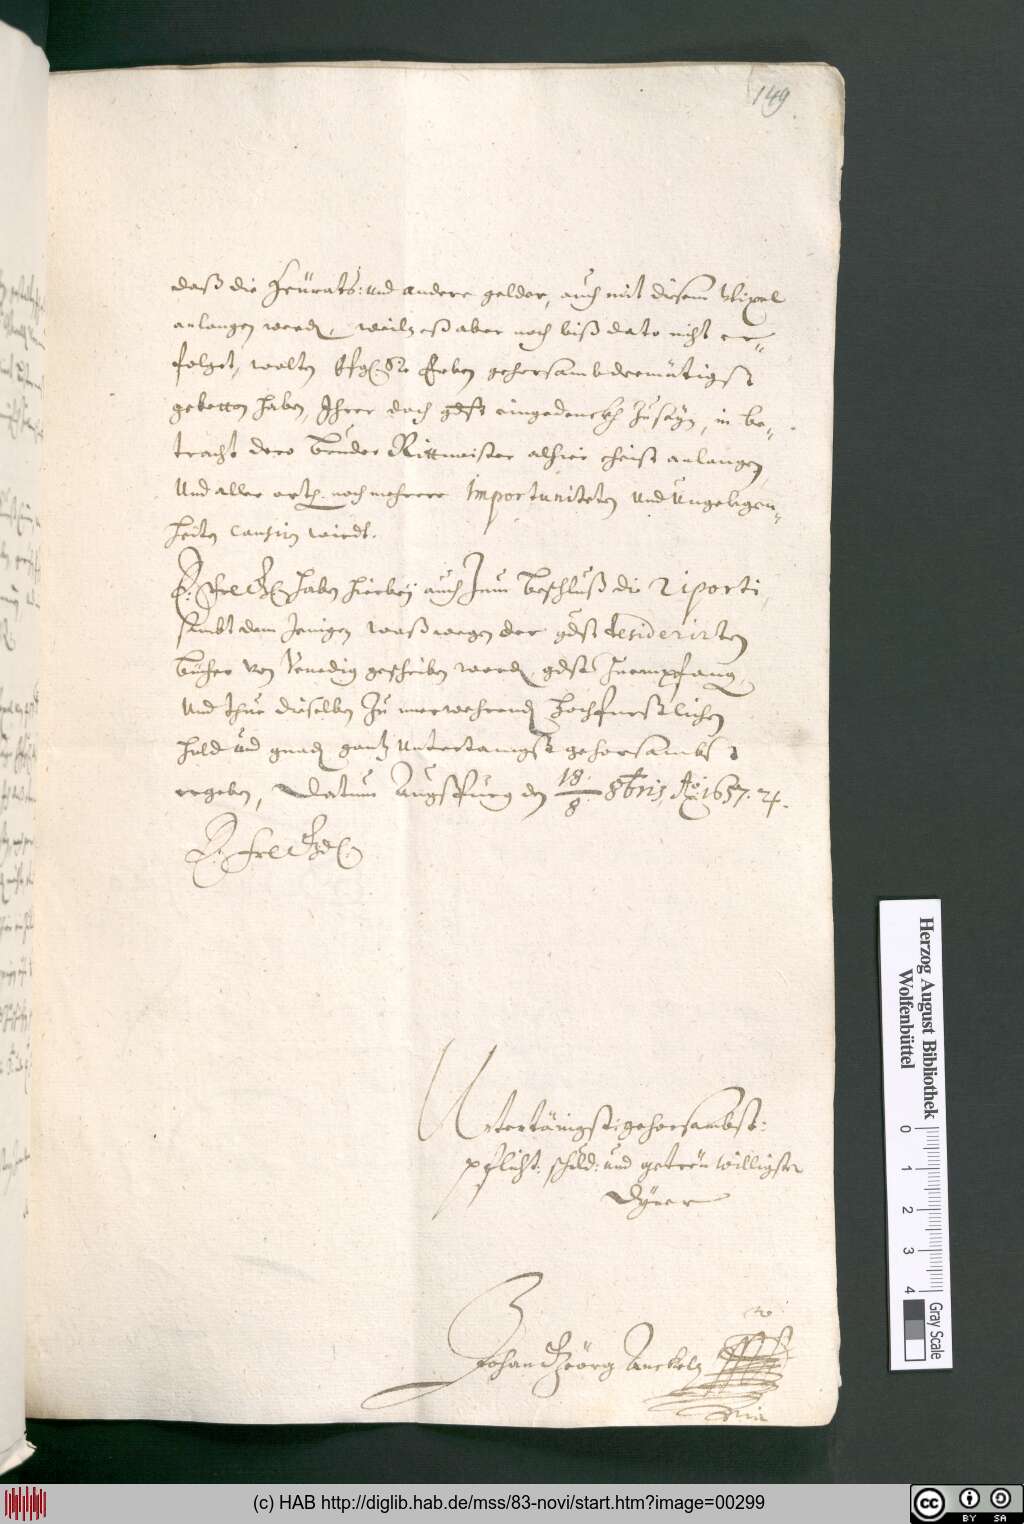 149
daß die Heürats: und andere gelder, auch mit disem Wixel
anlangen werd, weiln eß aber noch biß dato nicht er=
folgt, wolten gehorsamb demütigst
gebetten haben, Ihrer doch gdst eingedenckh zu seyn, in be=
tracht dero bruder Rittmeister alhier anlangen,
Und aller orth noch mehrere Importuniteten und Ungelegen=
heiten causirn wirdt.
haben hierbey auch zum beschluß die riporti
sambt dem jenigen waß wegen der gdst desiderirten
bücher von Venedig geschriben worden, gdst zu empfang,
Und thue dieselben zu hochfürstlichen
huld und gnad gantz untertänigst gehorsambst
ergeben, Datum Augspurg den 18./8. 8bris, Ao. 1657.
Untertänigst: gehorsambst:
pflicht: schuld: und getreü willigster
Dyener
Johan Georg Anckel
Herzog August Bibliothek
Wolfenbüttel
0 1 2 3 4
Gray Scale
(c) HAB http://diglib.hab.de/mss/83-novi/start.htm?image=00299
cc BY SA